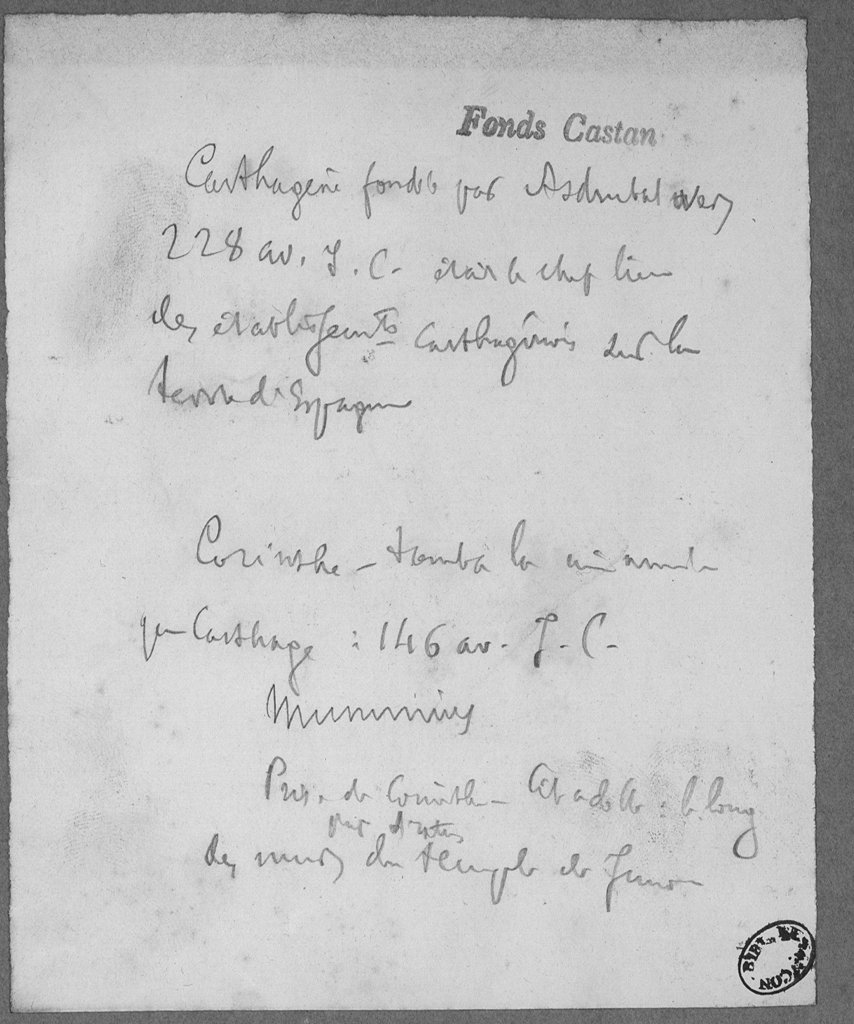 Fonds Castan
Carthagène fondée par Asdrubal vers
228 av. J. C. était le chef lieu
des établissements Carthaginois sur la
terre d'Espagne
Corinthe – tomba la même année
que Carthage : 146 av. J. C.
Mummius
Prise de Corinthe – Citadelle : le long
par Aratus
des murs du temple de Junon
BIBL. BESANÇON